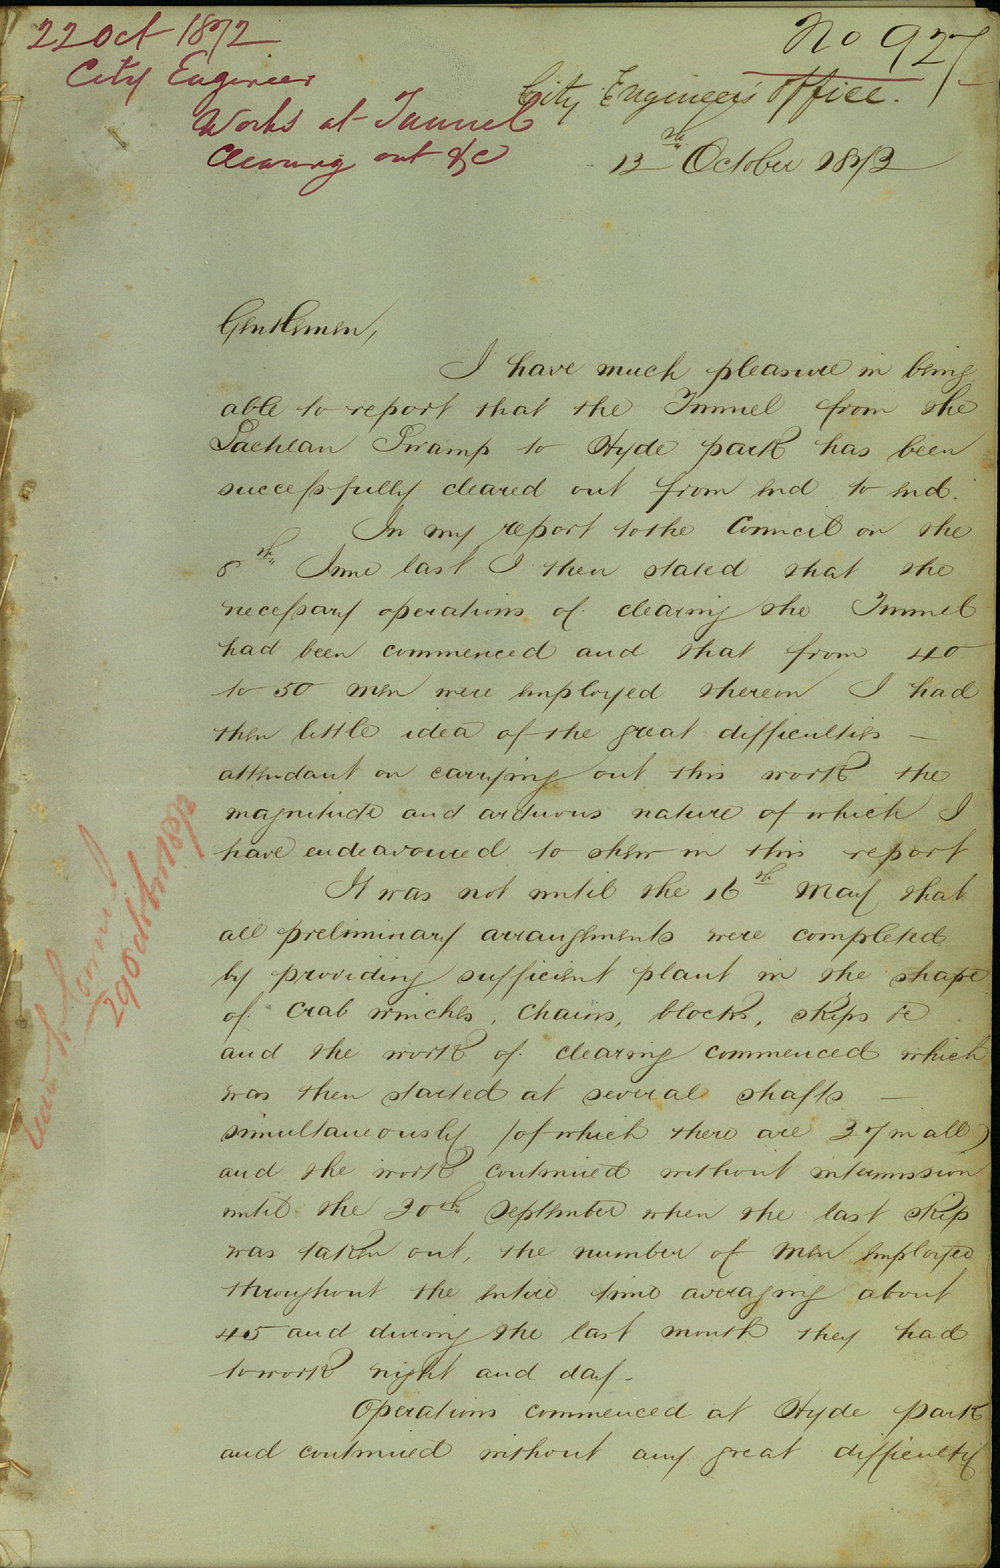 22 Oct 1872
City Engineer
Works at Tunnel
Clearing out &c
No 927
City Engineers Office.
12th October 1872
Gentlemen,
I have much pleasure in being
able to report that the Tunnel from the
Lachlan Swamp to Hyde park has been
successfully cleared out from end to end.
In my report to the Council on the
8th June last I then stated that the
necessary operations of clearing the Tunnel
had been commenced and that from 40
to 50 men were employed thereon I had
then little idea of the great difficulties –
attendant on carrying out this work the
magnitude and arduous nature of which I
have endeavoured to shew in this report
It was not until the 16th May that
all preliminary arrangements were completed
by providing sufficient plant in the shape
of Crab winches, Chains, blocks, skips &c
and the work of clearing commenced which
was then started at several shafts –
simultaneously (of which there are 27 in all)
and the work continued without intermission
until the 30th September when the last skip
was taken out, the number of men employed
throughout the entire time averaging about
45 and during the last month they had
to work night and day.
Operations commenced at Hyde park
and continued without any great difficulty
Council
29 October 1872